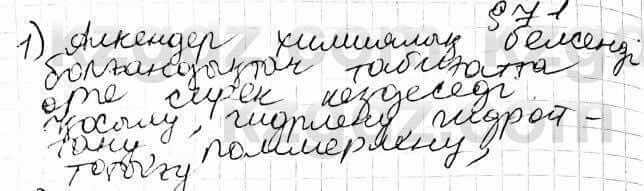 § 71
1) Алкендер химиялық белсенді
болғандықтан табиғатта
өте сирек кездеседі.
Қосылу, гидрлену, гидрат-
тану, полимерлену,
тотығу